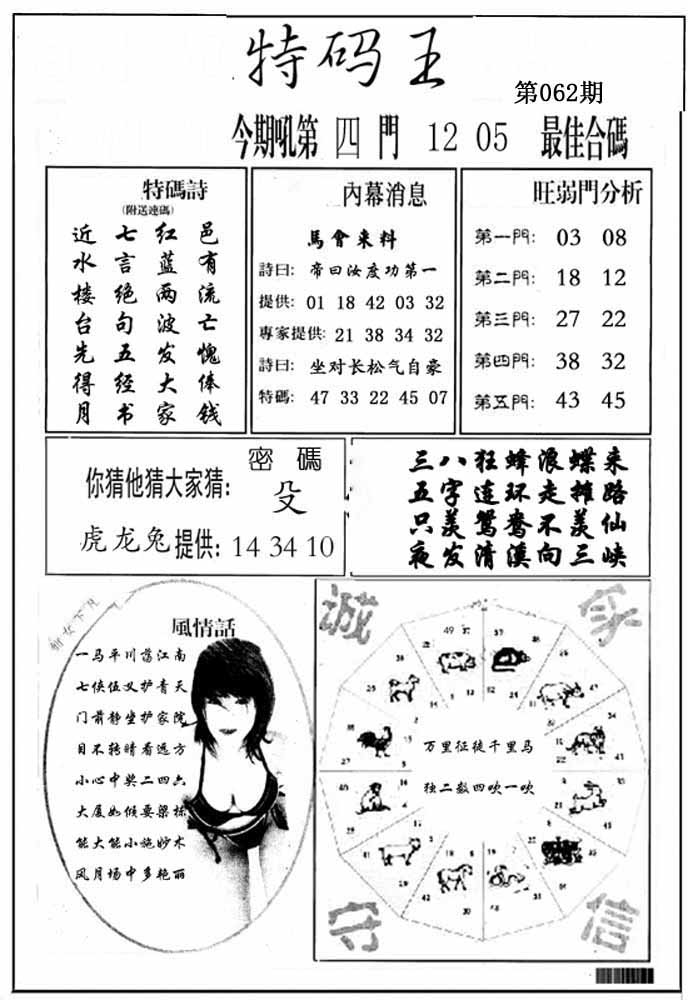 特码王
第062期
今期吼第 四 門 12 05 最佳合碼
特碼詩
(附送連碼)
近 七 红 邑
水 言 蓝 有
楼 绝 两 流
台 句 波 亡
先 五 发 愧
得 经 大 俸
月 书 家 钱
內幕消息
馬會来料
詩曰: 帝曰汝度功第一
提供: 01 18 42 03 32
專家提供: 21 38 34 32
詩曰: 坐对长松气自豪
特碼: 47 33 22 45 07
旺弱門分析
第一門: 03 08
第二門: 18 12
第三門: 27 22
第四門: 38 32
第五門: 43 45
密碼
你猜他猜大家猜: 殳
虎龙兔提供: 14 34 10
三八狂蜂浪蝶来
五字连环走摊路
只羡鸳鸯不羡仙
夜发清溪向三峡
風情話
一马平川荡江南
七侠伍义护青天
门前静坐护家院
目不转睛看远方
小心中奖二四六
大厦如候要梁栋
能大能小施妙术
风月场中多艳丽
诚 家
万里征徒千里马
独二数四吹一吹
守 信